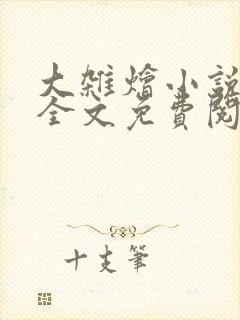 大雜燴小說
全文免費閱
十支筆